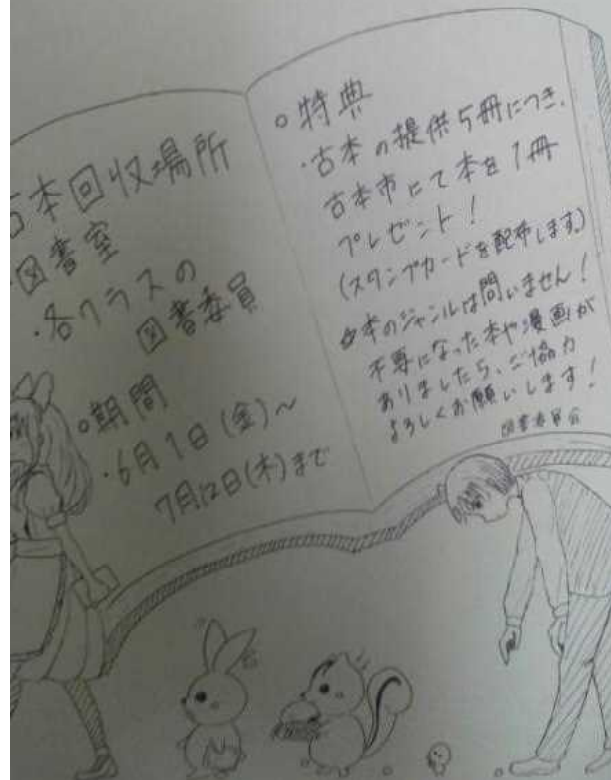 古本回収場所
・図書室
・各クラスの
図書委員
○期間
・6月1日(金)～
7月12日(木)まで
○特典
・古本の提供5冊につき、
古本市にて本を1冊
プレゼント！
(スタンプカードを配布します)
☆本のジャンルは問いません！
不要になった本や漫画が
ありましたら、ご協力
よろしくお願いします！
図書委員会